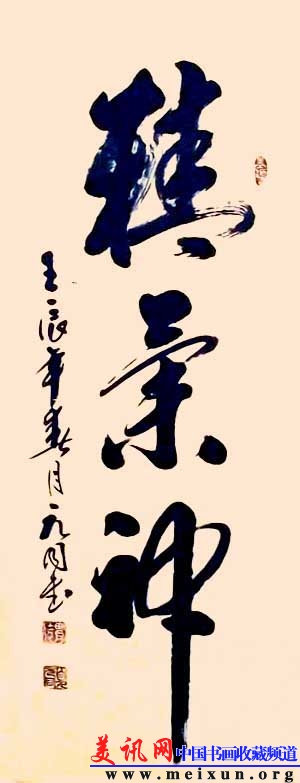 精氣神
壬辰年春月
美讯网 中国书画收藏频道
www.meixun.org